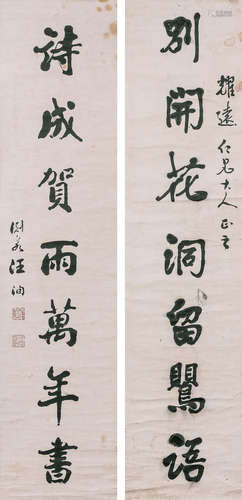 耀遠仁兄大人正之
別開花洞留鸎語
詩成賀雨萬年書
汪洵